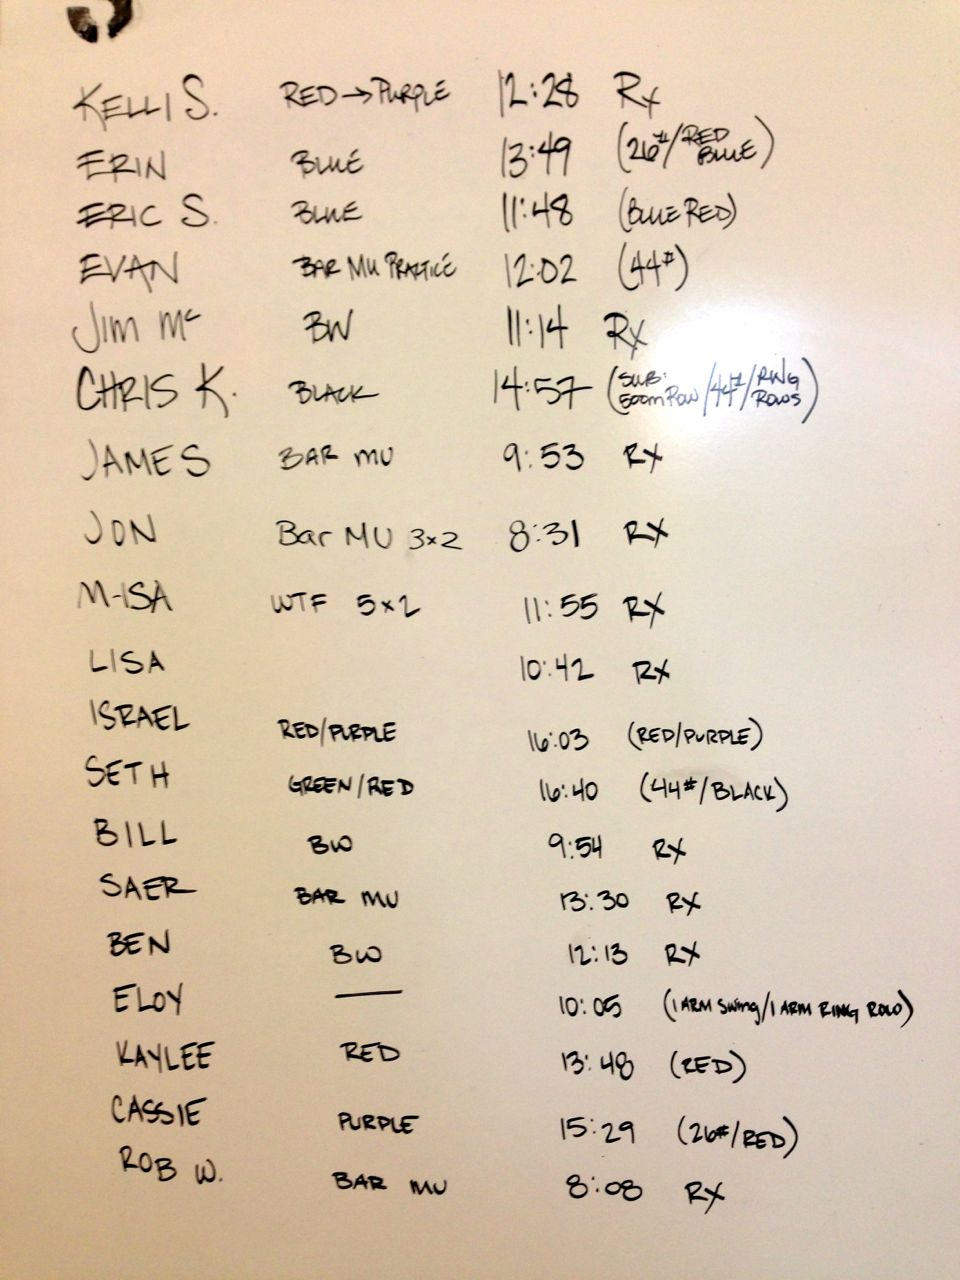 KELLI S. RED→PURPLE 12:28 Rx
ERIN BLUE 13:49 (26#/RED BLUE)
ERIC S. BLUE 11:48 (BLUE RED)
EVAN BAR MU PRACTICE 12:02 (44#)
Jim Mc BW 11:14 Rx
CHRIS K. BLACK 14:57 (SUB: 500m ROW/44#/RING ROWS)
JAMES BAR MU 9:53 RX
JON Bar MU 3x2 8:31 RX
M-ISA WTF 5x2 11:55 RX
LISA 10:42 RX
ISRAEL RED/PURPLE 16:03 (RED/PURPLE)
SETH GREEN/RED 16:40 (44#/BLACK)
BILL BW 9:54 RX
SAER BAR MU 13:30 RX
BEN BW 12:13 RX
ELOY — 10:05 (1 ARM SWING/1 ARM RING ROW)
KAYLEE RED 13:48 (RED)
CASSIE PURPLE 15:29 (26#/RED)
ROB W. BAR MU 8:08 RX